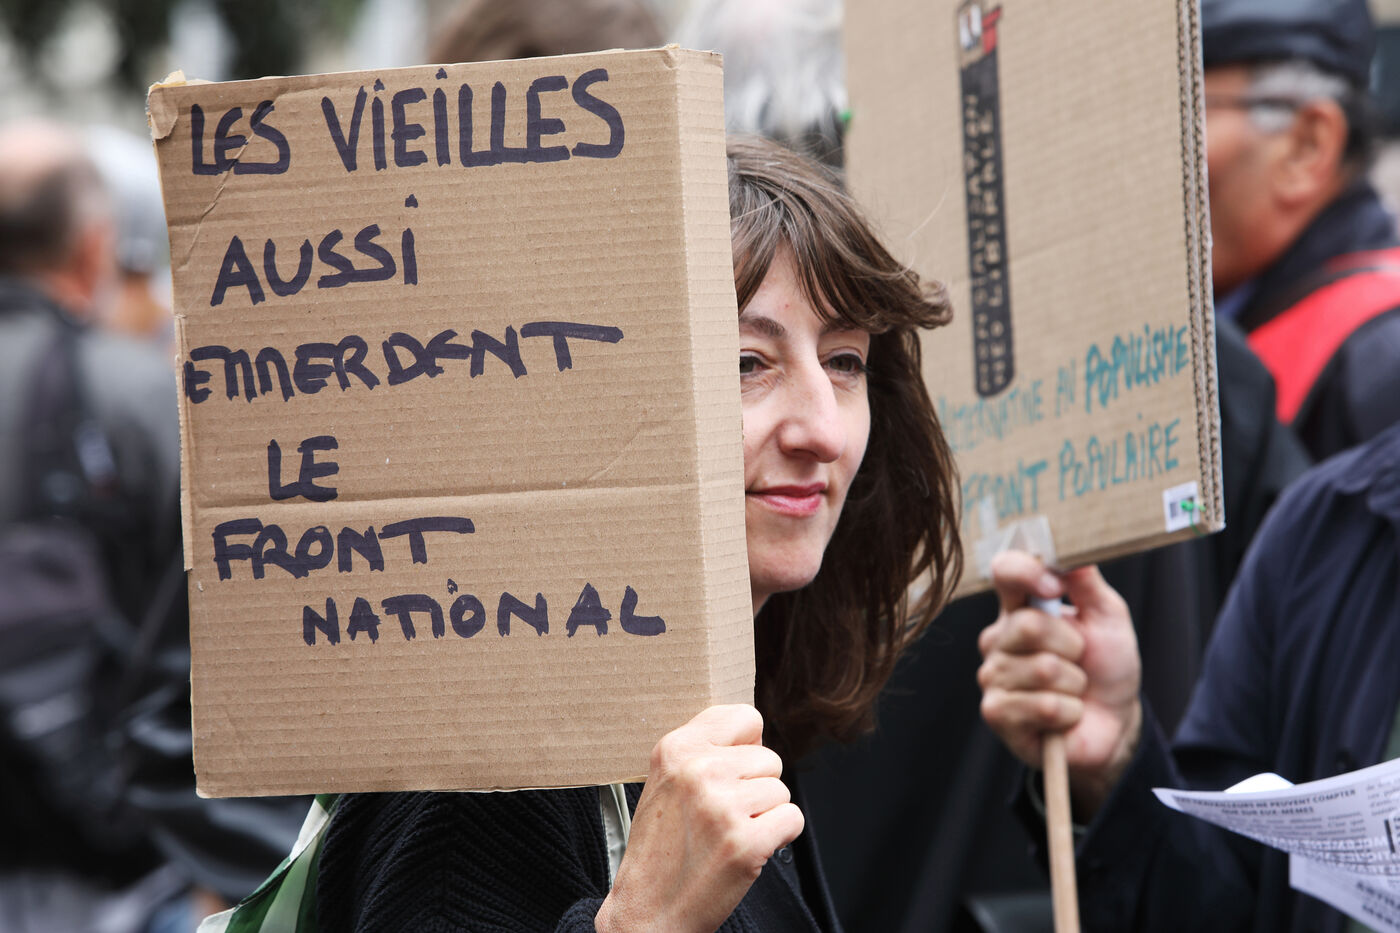 LES VIEILLES
AUSSI
EMMERDENT
LE
FRONT
NATIONAL
ALTERNATIVE AU POPULISME
FRONT POPULAIRE
LES TRAVAILLEURS NE PEUVENT COMPTER
QUE SUR EUX-MÊMES